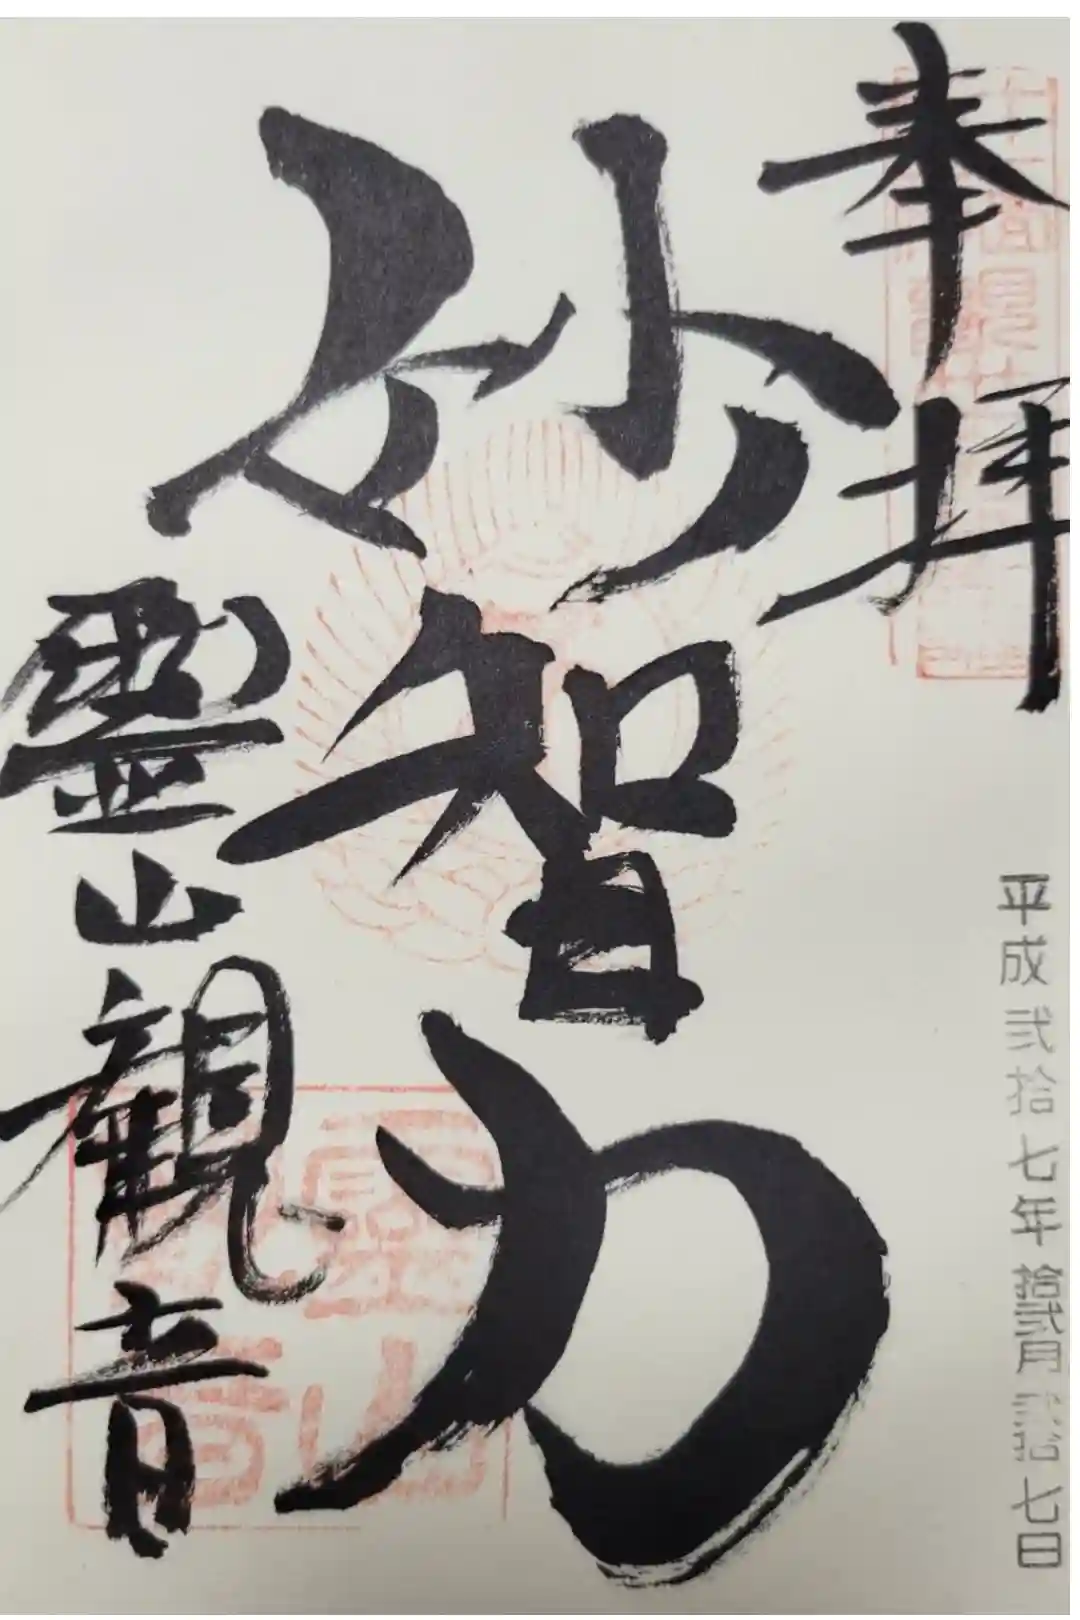 奉拝
平成弐拾七年拾弐月弐拾七日
妙智力
靈山觀音